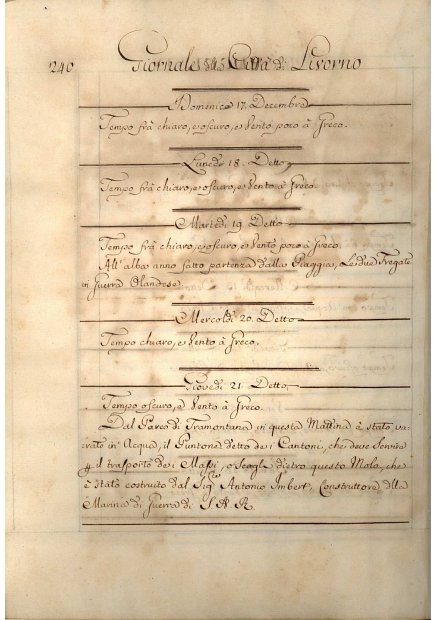 240 Giornale Città di Livorno
Domenica 17. Decembre
Tempo frà chiaro, e oscuro, e Vento poco à Greco.
Lunedì 18. Detto
Tempo frà chiaro, e oscuro, e Vento à Greco.
Martedì 19. Detto
Tempo frà chiaro, e oscuro, e Vento poco à Greco.
All' alba anno fatto partenza dalla Piaggia, Le due Fregate
in Guerra Olandese
Mercoldì 20. Detto
Tempo chiaro, e Vento à Greco.
Giovedì 21. Detto
Tempo oscuro, e Vento à Greco.
Dal Parco di Tramontana in questa Mattina è stato va-
rato in Acqua, il Puntone detto dei Cantoni, che deve Servire
il trasporto dei Massi, o Scogli dietro questo Molo, che
è stato costruito dal Sig.re Antonio Imbert, Construttore della
Marina di Guerra di S. A. R.